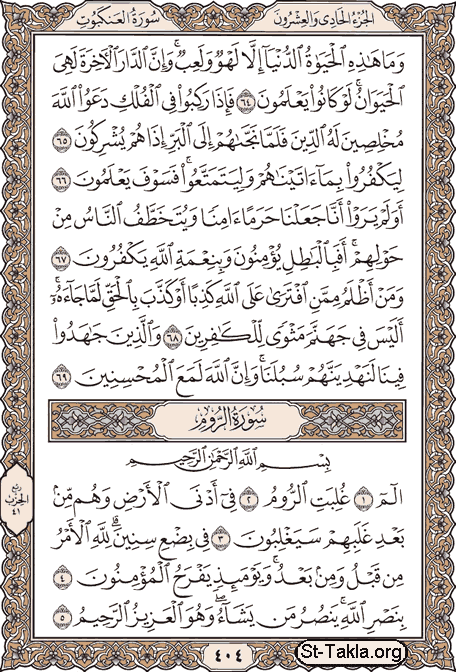 الجزء الحادي والعشرون
سورة العنكبوت
وَمَا هَٰذِهِ الْحَيَوٰةُ الدُّنْيَآ إِلَّا لَهْوٌ وَلَعِبٌ ۚ وَإِنَّ الدَّارَ الْآخِرَةَ لَهِىَ
الْحَيَوَانُ ۚ لَوْ كَانُوا۟ يَعْلَمُونَ ٦٤ فَإِذَا رَكِبُوا۟ فِى الْفُلْكِ دَعَوُا۟ اللَّهَ
مُخْلِصِينَ لَهُ الدِّينَ فَلَمَّا نَجَّىٰهُمْ إِلَى الْبَرِّ إِذَا هُمْ يُشْرِكُونَ ٦٥
لِيَكْفُرُوا۟ بِمَآ ءَاتَيْنَٰهُمْ وَلِيَتَمَتَّعُوا۟ ۖ فَسَوْفَ يَعْلَمُونَ ٦٦
أَوَلَمْ يَرَوْا۟ أَنَّا جَعَلْنَا حَرَمًا ءَامِنًا وَيُتَخَطَّفُ النَّاسُ مِنْ
حَوْلِهِمْ ۚ أَفَبِالْبَٰطِلِ يُؤْمِنُونَ وَبِنِعْمَةِ اللَّهِ يَكْفُرُونَ ٦٧
وَمَنْ أَظْلَمُ مِمَّنِ افْتَرَىٰ عَلَى اللَّهِ كَذِبًا أَوْ كَذَّبَ بِالْحَقِّ لَمَّا جَآءَهُۥٓ ۚ
أَلَيْسَ فِى جَهَنَّمَ مَثْوًى لِّلْكَٰفِرِينَ ٦٨ وَالَّذِينَ جَٰهَدُوا۟
فِينَا لَنَهْدِيَنَّهُمْ سُبُلَنَا ۚ وَإِنَّ اللَّهَ لَمَعَ الْمُحْسِنِينَ ٦٩
سورة الروم
بِسْمِ اللَّهِ الرَّحْمَٰنِ الرَّحِيمِ
الٓمٓ ١ غُلِبَتِ الرُّومُ ٢ فِىٓ أَدْنَى الْأَرْضِ وَهُم مِّنۢ
بَعْدِ غَلَبِهِمْ سَيَغْلِبُونَ ٣ فِى بِضْعِ سِنِينَ ۗ لِلَّهِ الْأَمْرُ
مِن قَبْلُ وَمِنۢ بَعْدُ ۚ وَيَوْمَئِذٍ يَفْرَحُ الْمُؤْمِنُونَ ٤
بِنَصْرِ اللَّهِ ۚ يَنصُرُ مَن يَشَآءُ ۖ وَهُوَ الْعَزِيزُ الرَّحِيمُ ٥
ربع
الحزب
٤١
٤٠٤
St-Takla.org